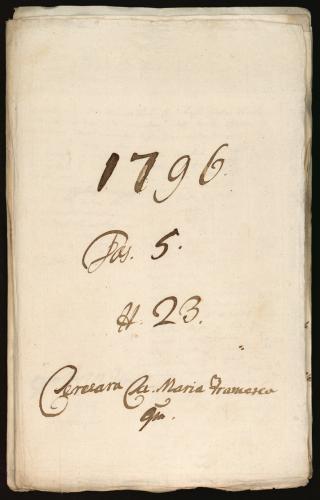 1796.
Fas. 5.
N. 23.
Ceresara Ca. Maria Francesca
qm.